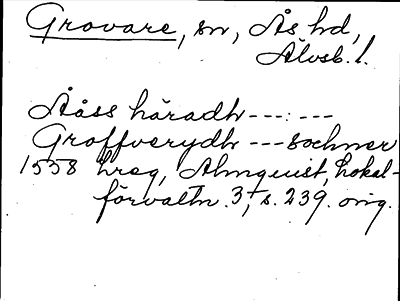 Grovare, sn, Ås hd,
Älvsb. l.
Ååss häradh ---:---
Groffverydh --- sochner
1558 hreg, Almquist, Lokal-
förvaltn. 3, s. 239. orig.